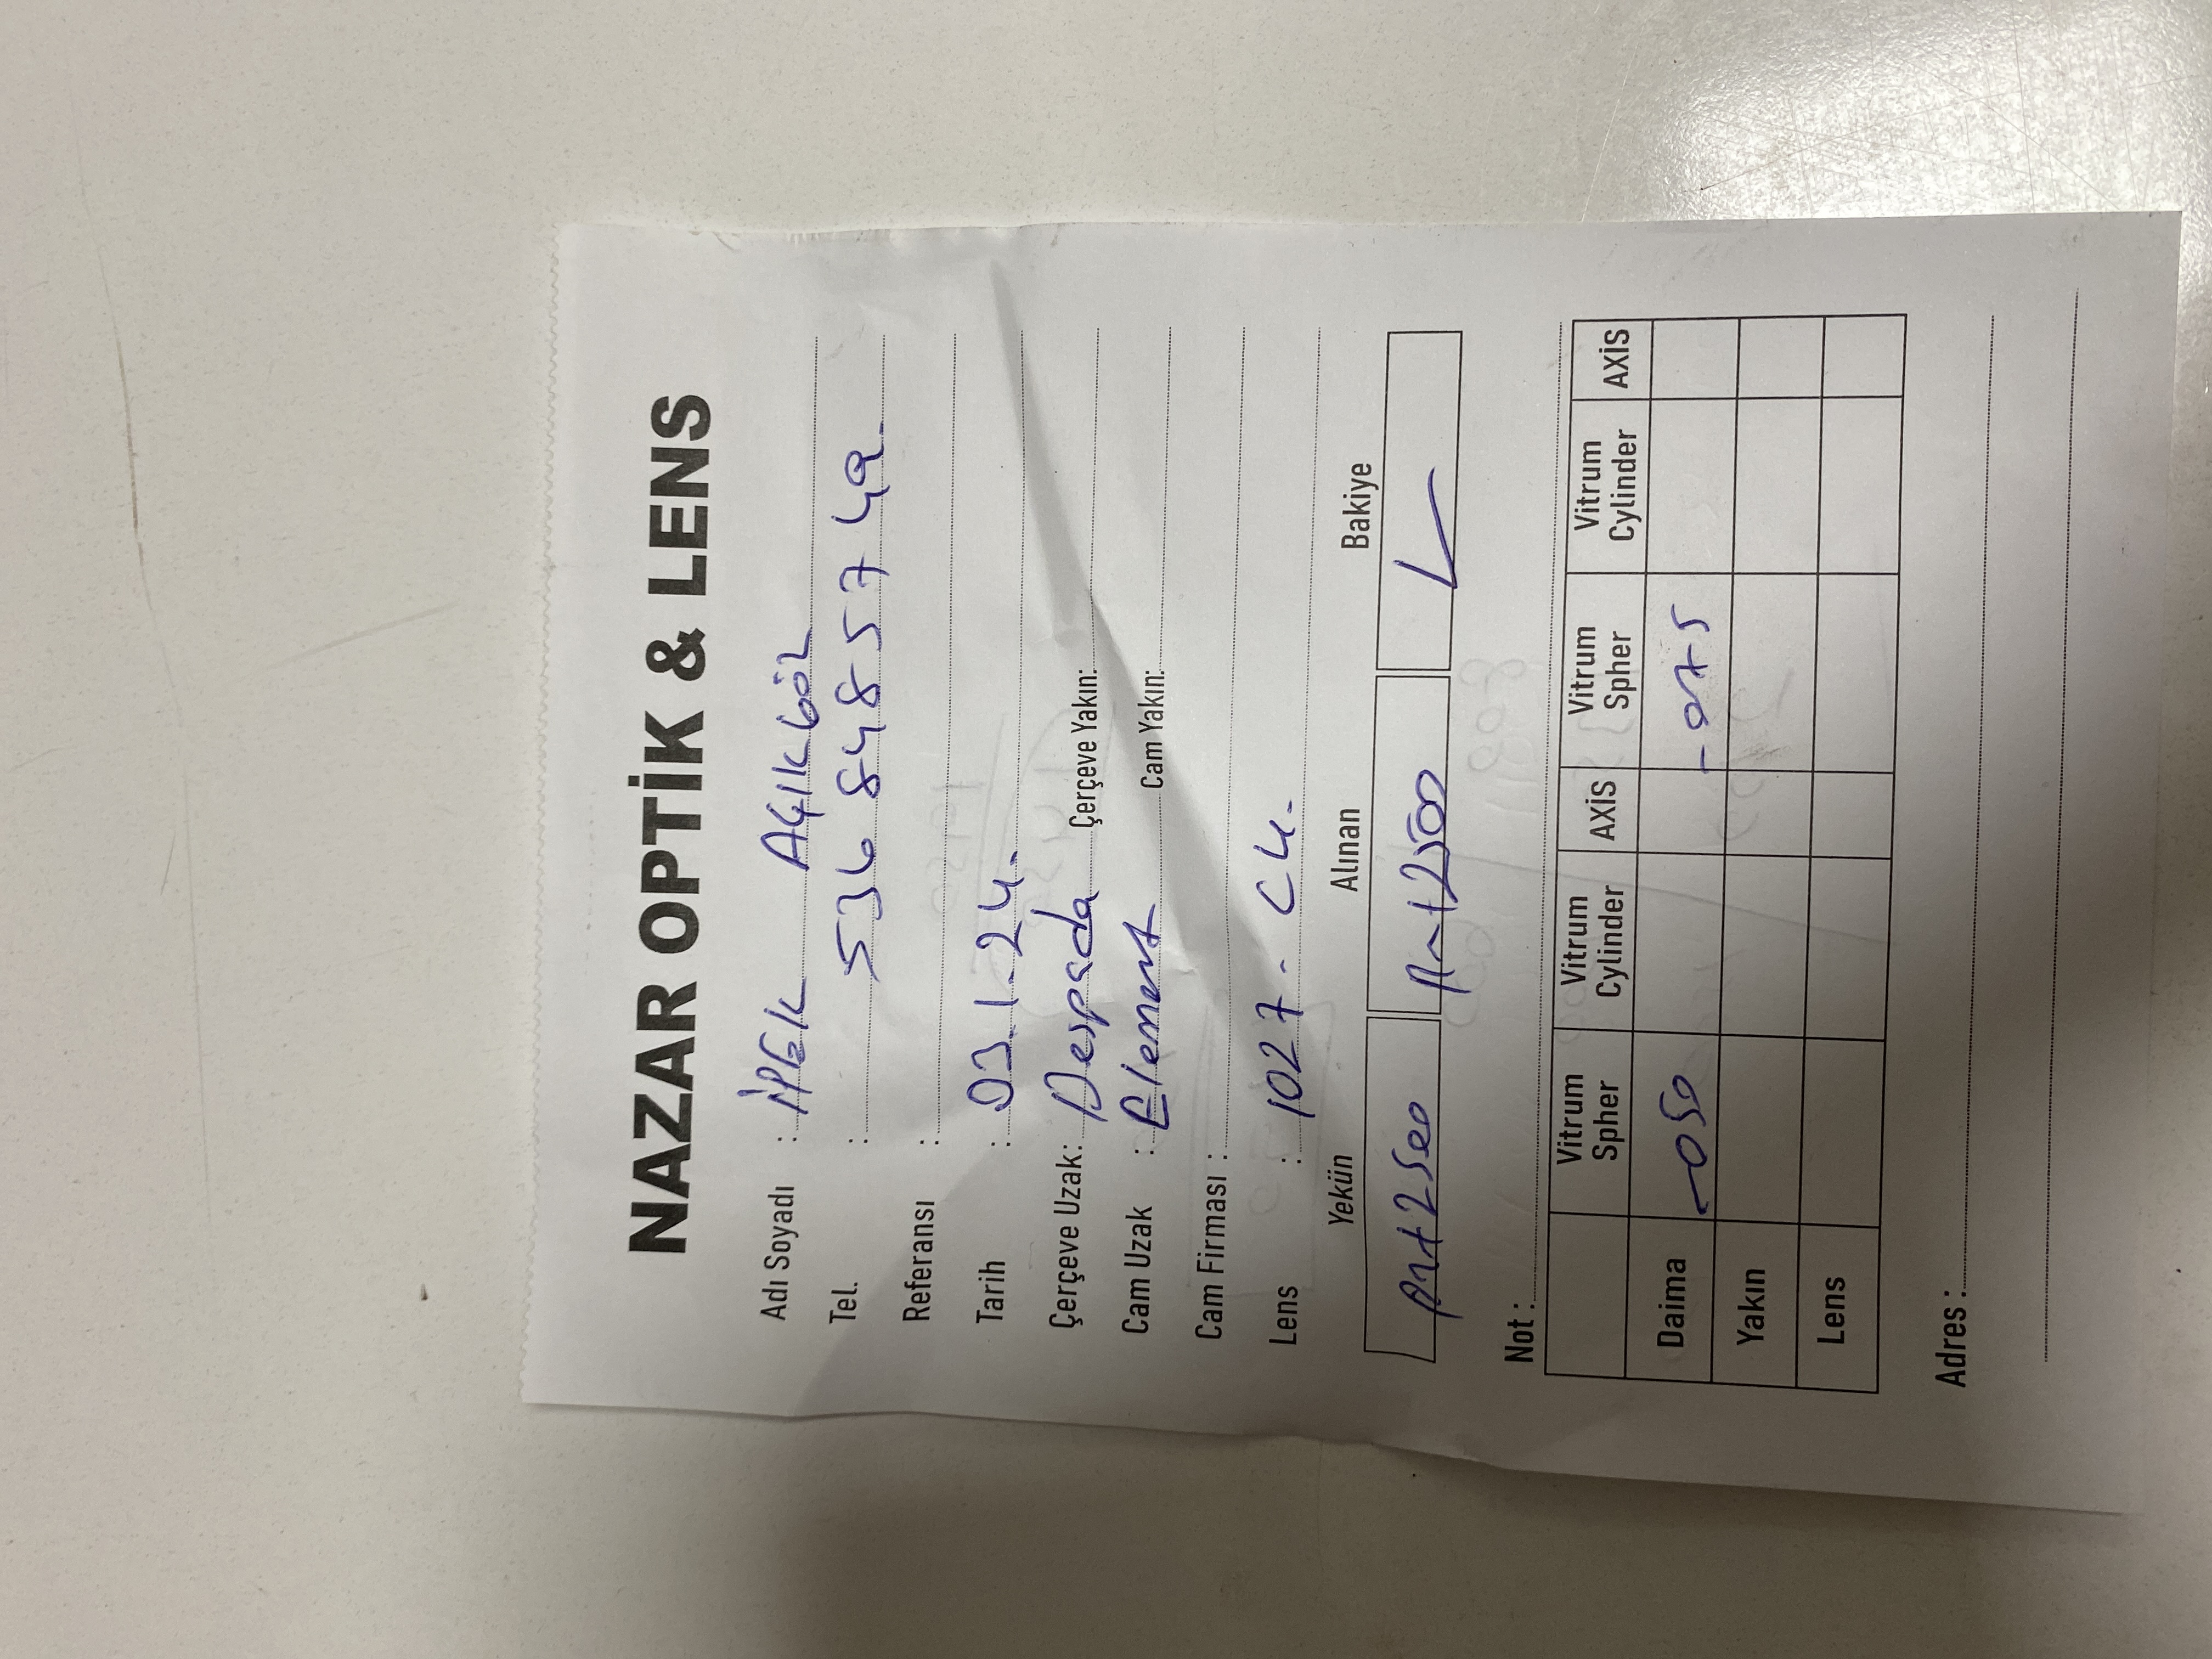 NAZAR OPTİK & LENS
Adı Soyadı : İPEK AÇIKGÖZ
Tel. : 536 848 57 49.
Referansı :
Tarih : 03.1.24.
Çerçeve Uzak: Despada Çerçeve Yakın:
Cam Uzak : Element Cam Yakın:
Cam Firması :
Lens : 1027 - C4.
Yekün Alınan Bakiye
+2500 +2500
Not :
Vitrum Spher Vitrum Cylinder AXİS Vitrum Spher Vitrum Cylinder AXİS
Daima -050 -075
Yakın
Lens
Adres :